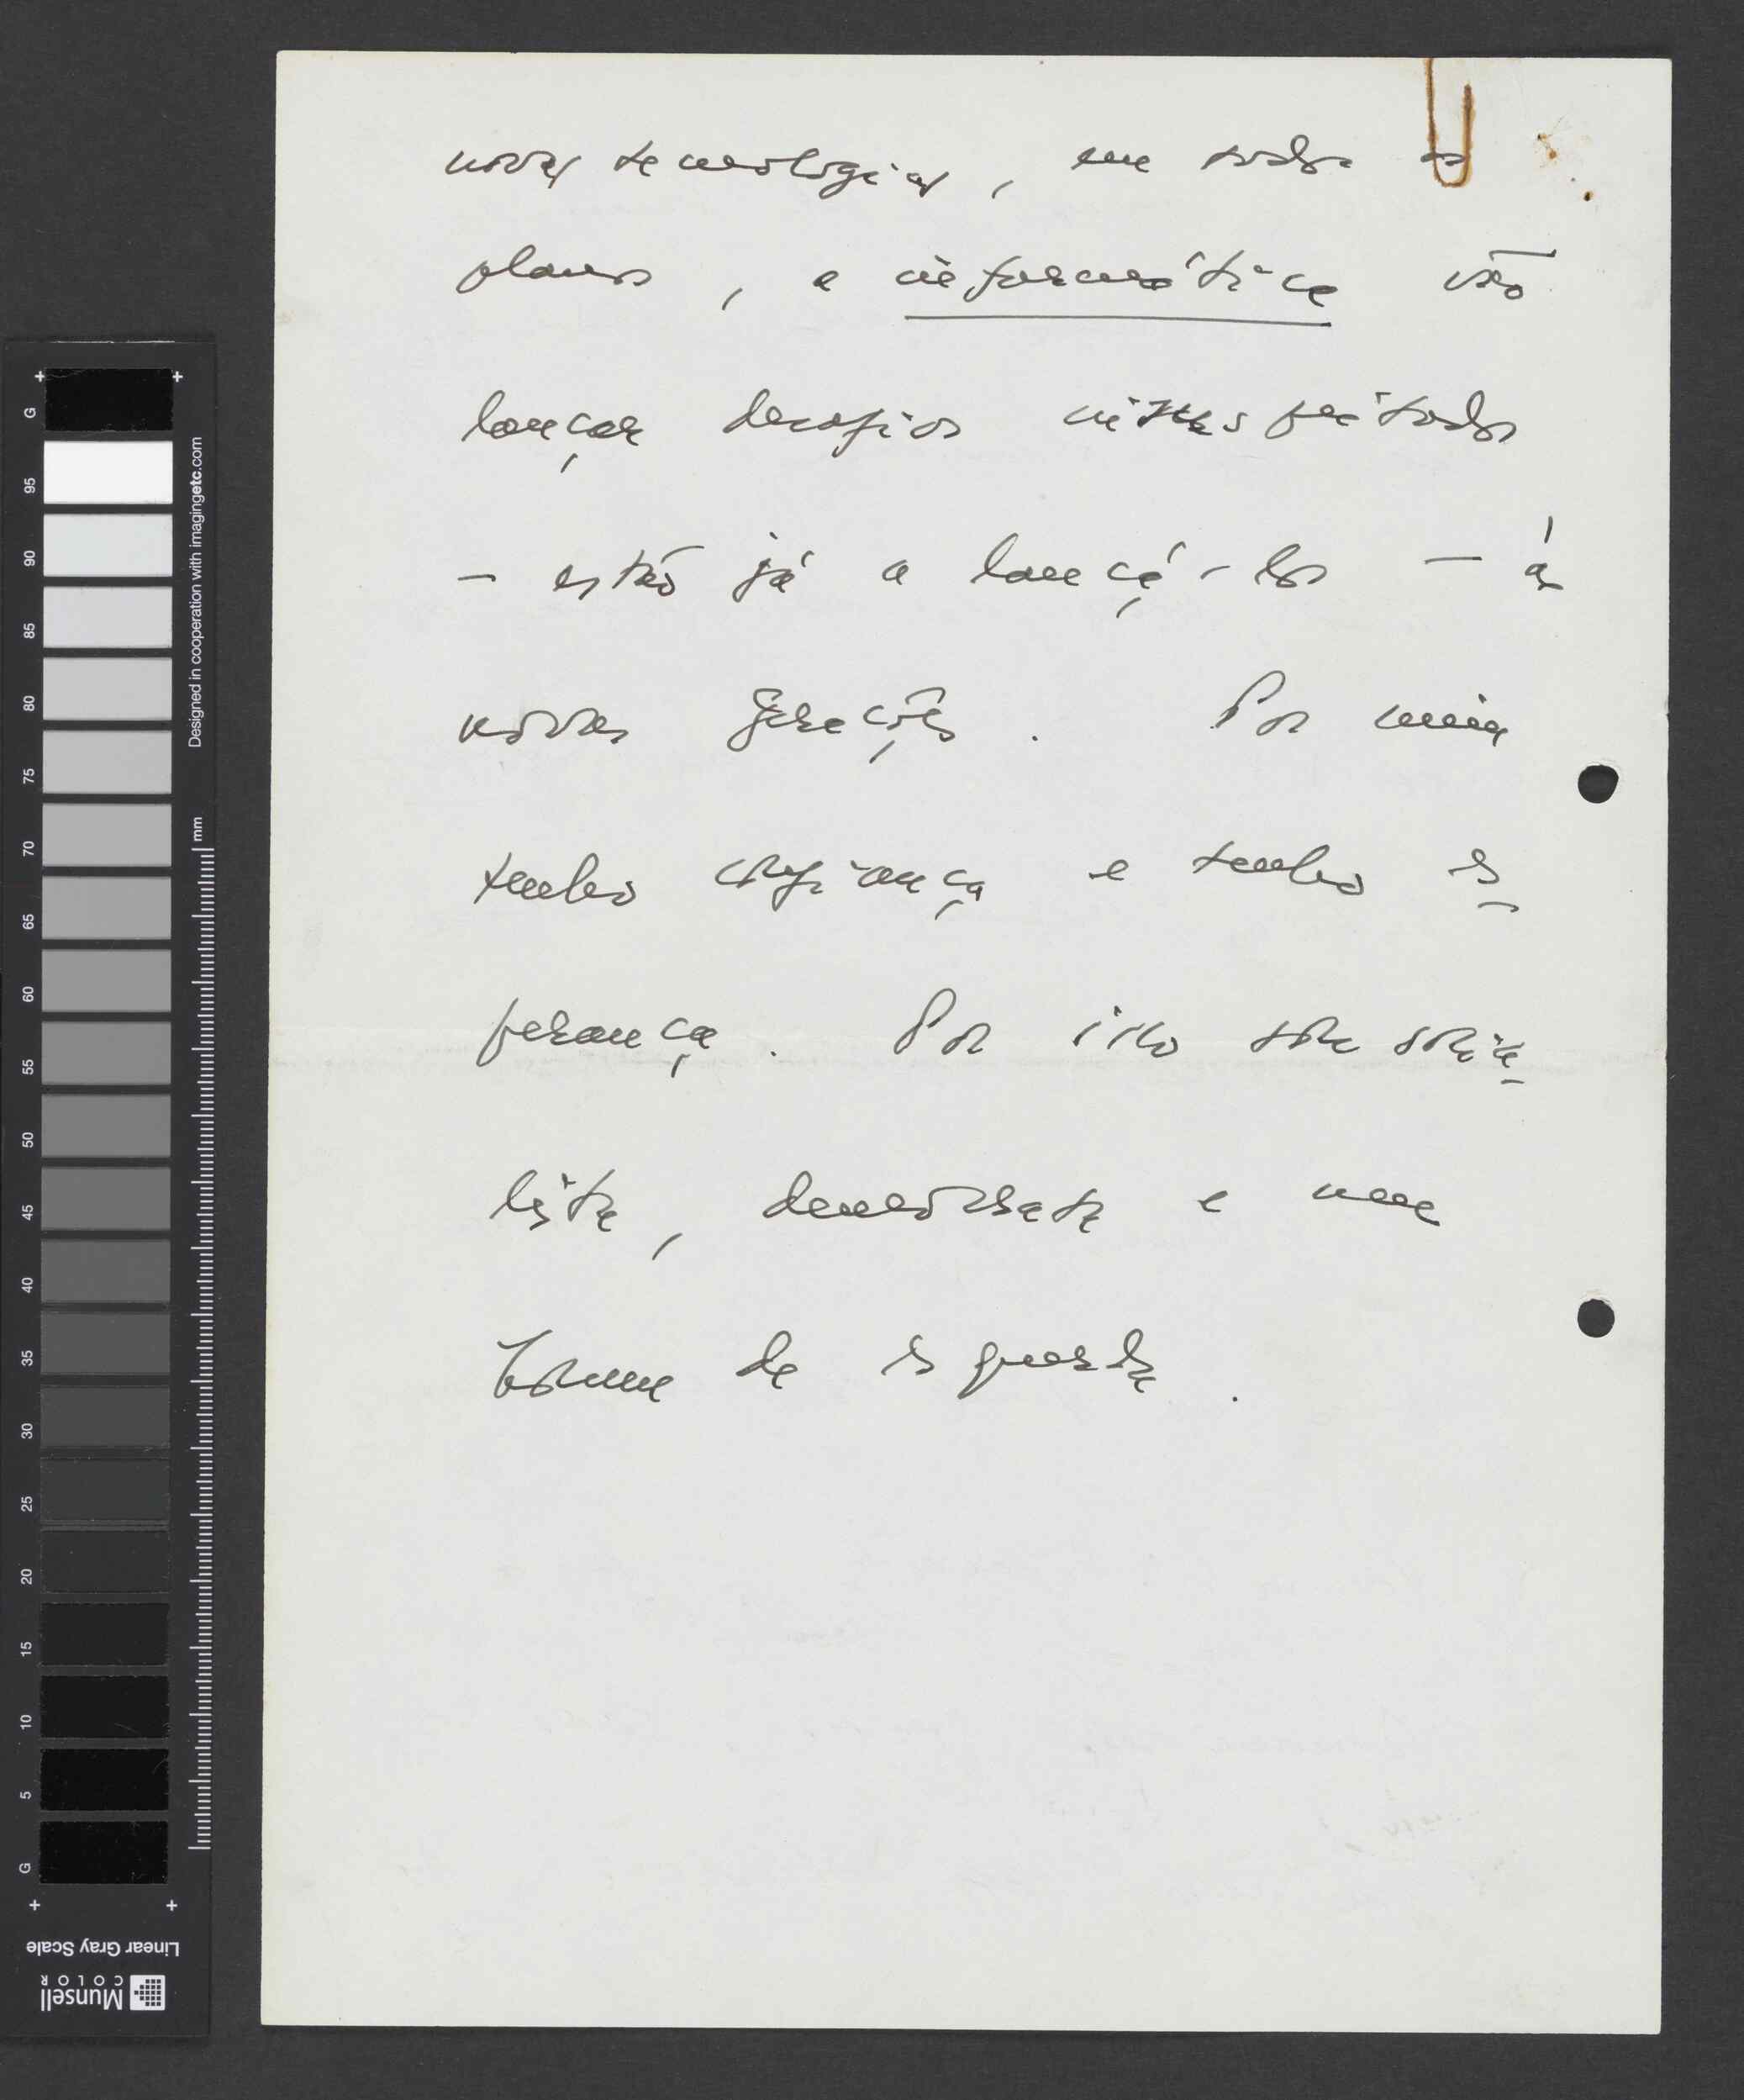 novas tecnologias, em todos os
planos, e informática vão
lançar desafios insuspeitados
- estão já a lançá-los - às
novas gerações. Por mim
tenho confiança e tenho es
perança. Por isso sou socia
lista, democrata e um
homem de esquerda.
G
95
90
85
80
75
70
65
60
55
50
45
40
35
30
25
20
15
10
5
G
Designed in cooperation with imagingetc.com
mm
Linear Gray Scale
Munsell
COLOR